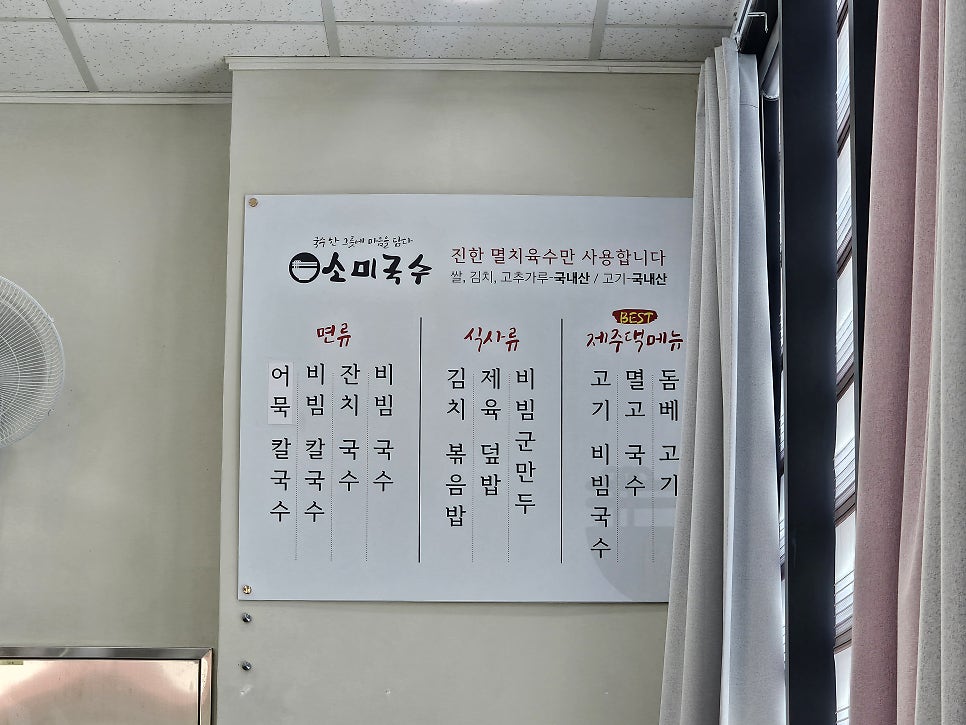 국수 한 그릇에 마음을 담다
소미국수
진한 멸치육수만 사용합니다
쌀, 김치, 고추가루-국내산 / 고기-국내산
면류
어묵 칼국수
비빔 칼국수
잔치 국수
비빔 국수
식사류
김치 볶음밥
제육 덮밥
비빔군만두
BEST
제주댁메뉴
고기 비빔국수
멸고 국수
돔베 고기